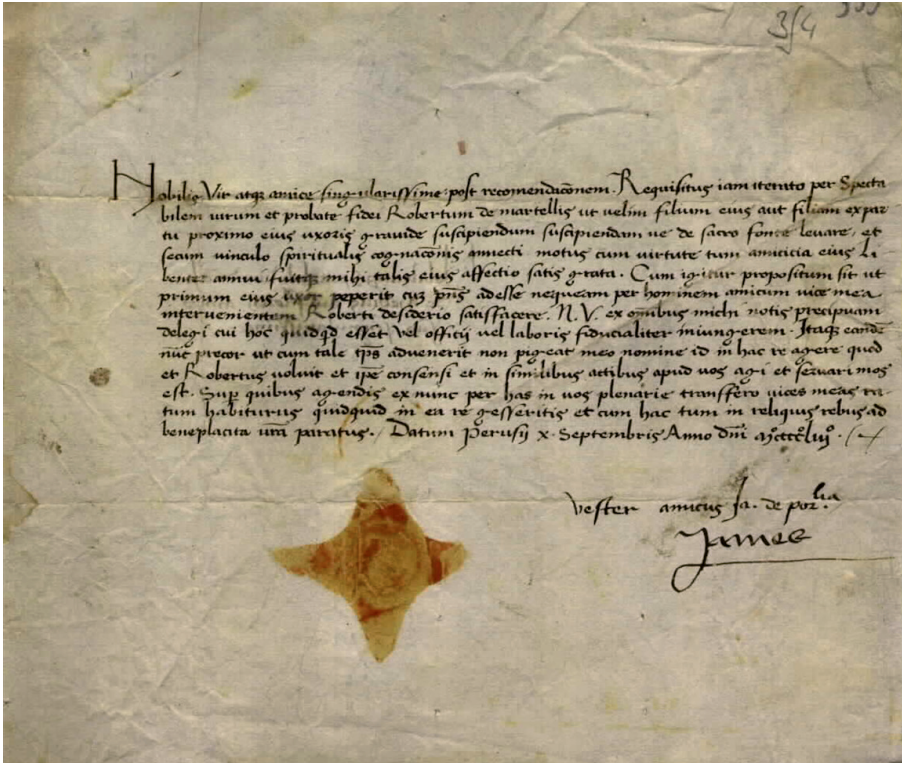 354
Nobilis Vir atq̃ amice singularissime post recomendac̃onem. Requisitus iam iterato per Specta
bilem uirum et probate fidei Robertum de martellis ut velim filium eius aut filiam ex par
tu proximo eius uxoris gravide suscipiendum suscipiendam ve de sacro fonte levare, et
secum vinculo spiritualis cognac̃onis annecti motus cum virtute tum amicicia eius Li
benter annui fuitq̃ mihi talis eius affectio satis grata. Cum igitur propositum sit ut
primum eius uxor peperit cuȝ p̃ns adesse nequeam per hominem amicum vice mea
intervenientem Roberti desiderio satisfacere. N. V. ex om̃ibus michi notis precipuam
delegi cui hoc quidq̃d esset vel officii vel laboris fiducialiter iniungerem. Itaq̃ eandẽ
nũc precor ut cum tale tp̃s advenerit non pigeat meo nomine id in hac re agere quod
et Robertus voluit et ip̃e consensi et in similibus actibus apud vos agi et servari mos
est. Sup̱ quibus agendis ex nunc per has in vos plenarie transfero vices meas ra
tum habiturus quidquid in ea re gesseritis et cum hac tum in reliquis rebus ad
beneplacita vr̃a paratus. Datum Perusii x. Septembris Anno dñi
Vester amicus Ja. de por.lia
James